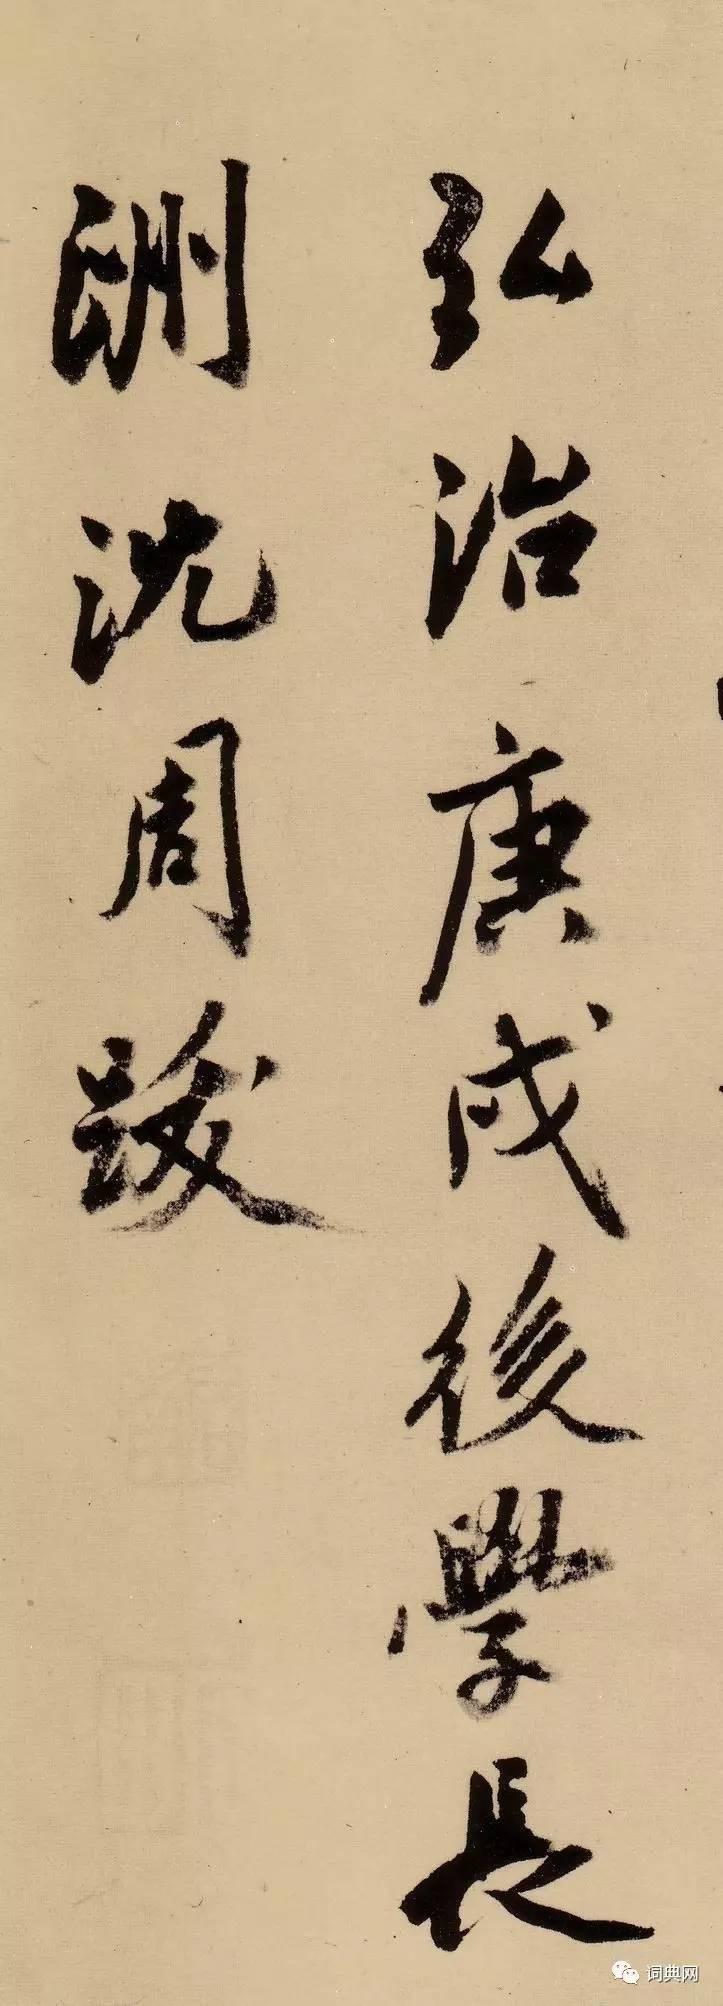 弘治庚戌後學長
洲沈周跋
词典网